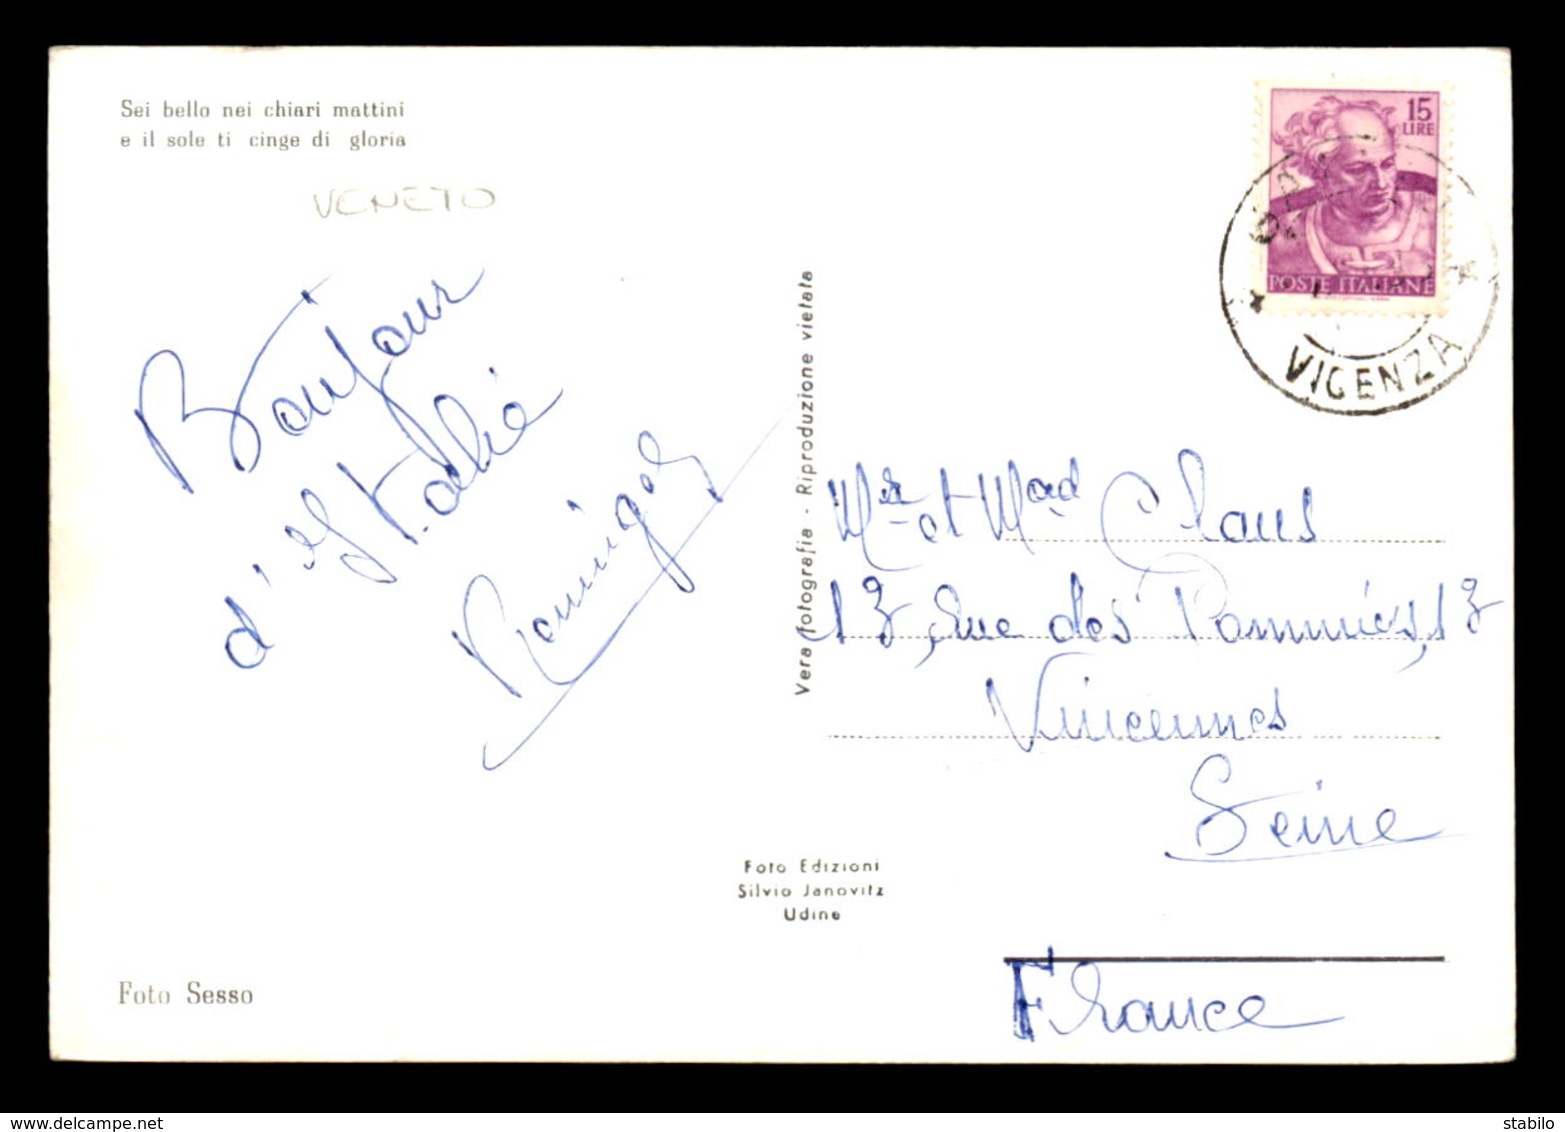 Sei bello nei chiari mattini
e il sole ti cinge di gloria
VENETO
Bonjour
d'Italie
15
LIRE
POSTE ITALIANE
VICENZA
Vera fotografia - Riproduzione vietata
Mr et Mad Claus
13, Rue des Pommiers, 13
Vincennes
Seine
France
Foto Edizioni
Silvio Janovitz
Udine
Foto Sesso
stabilo